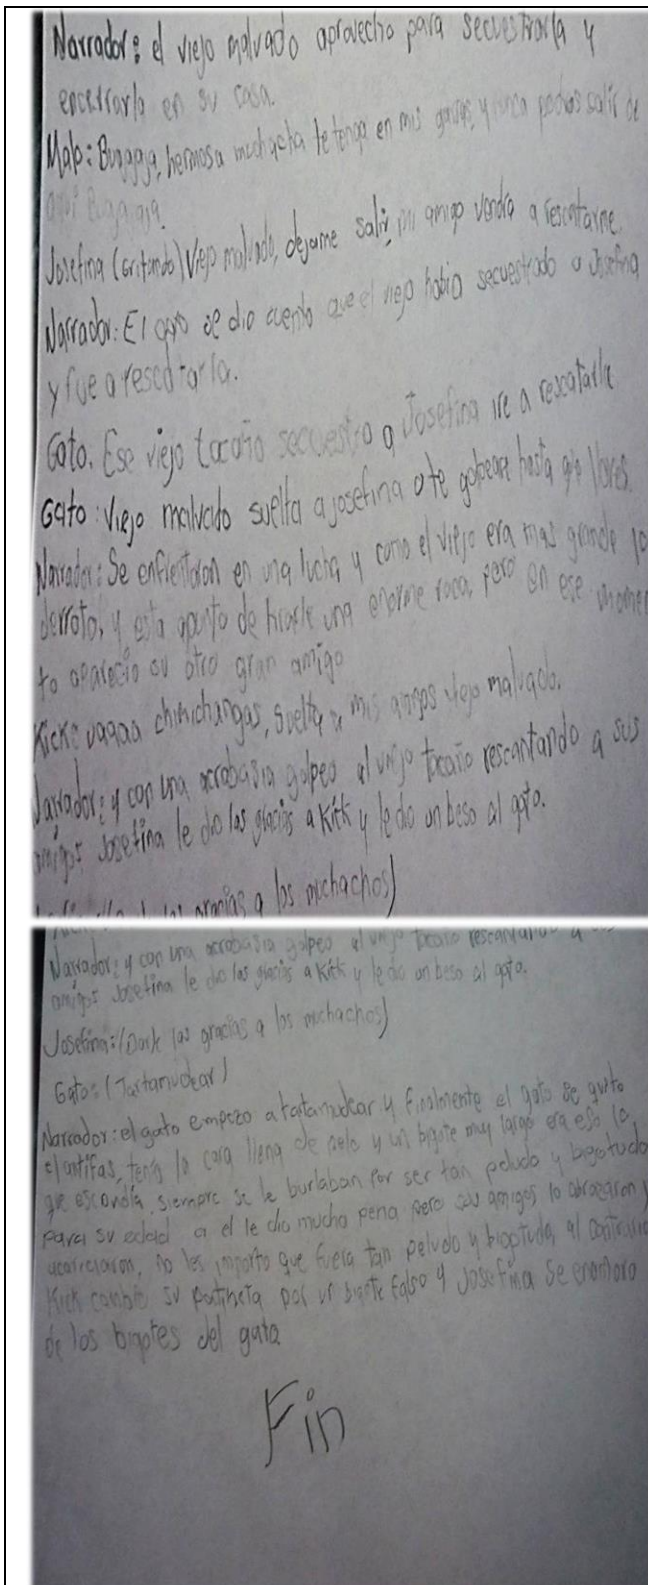 Narrador: el viejo malvado aprovecho para secuestrarla y
encerrarlo en su casa.
Malo: Buagaja, hermosa muchacha te tengo en mis garras, y nunca podras salir de
aqui Bugajaja.
Josefina (Gritando) Viejo malvado, dejame salir, mi amigo vendra a rescatarme.
Narrador: El gato se dio cuenta que el viejo habia secuestrado a Josefina
y fue a rescatarla.
Gato. Ese viejo tacaño seccuestro a Josefina ire a rescatarla
Gato: Viejo malvado suelta a josefina o te golpeare hasta que llores.
Narrador: Se enfrentaron en una lucha y como el viejo era mas grande lo
derroto, y esta apunto de tirarle una enorme roca, pero en ese momen
to aparecio su otro gran amigo
Kick: vaqaa chimichangas, suelta a mis amigos viejo malvado.
Narrador: y con una acrobasia golpeo al viejo tacaño rescantando a sus
amigos Josefina le dio las gracias a Kick y le dio un beso al gato.
gracias a los muchachos)
Narrador: y con una acrobasia golpeo al viejo tacaño rescantando a sus
amigos Josefina le dio las gracias a Kick y le dio un beso al gato.
Josefina: (Darle las gracias a los muchachos)
Gato: (Tartamudear)
Narrador: el gato empezo a tatamudear y finalmente el gato se quito
el antifas, tenia la cara llena de pelo y un bigote muy largo era eso lo
que escondia, siempre se le burlaban por ser tan peludo y bigotudo
para su edad a el le dio mucha pena pero sus amigos lo abrazaron y
acarreciaron, no les importo que fuera tan peludo y bigotudo, al contrario
Kick cambio su patineta por un bigote falso y Josefina se enamoro
de los bigotes del gato
Fin